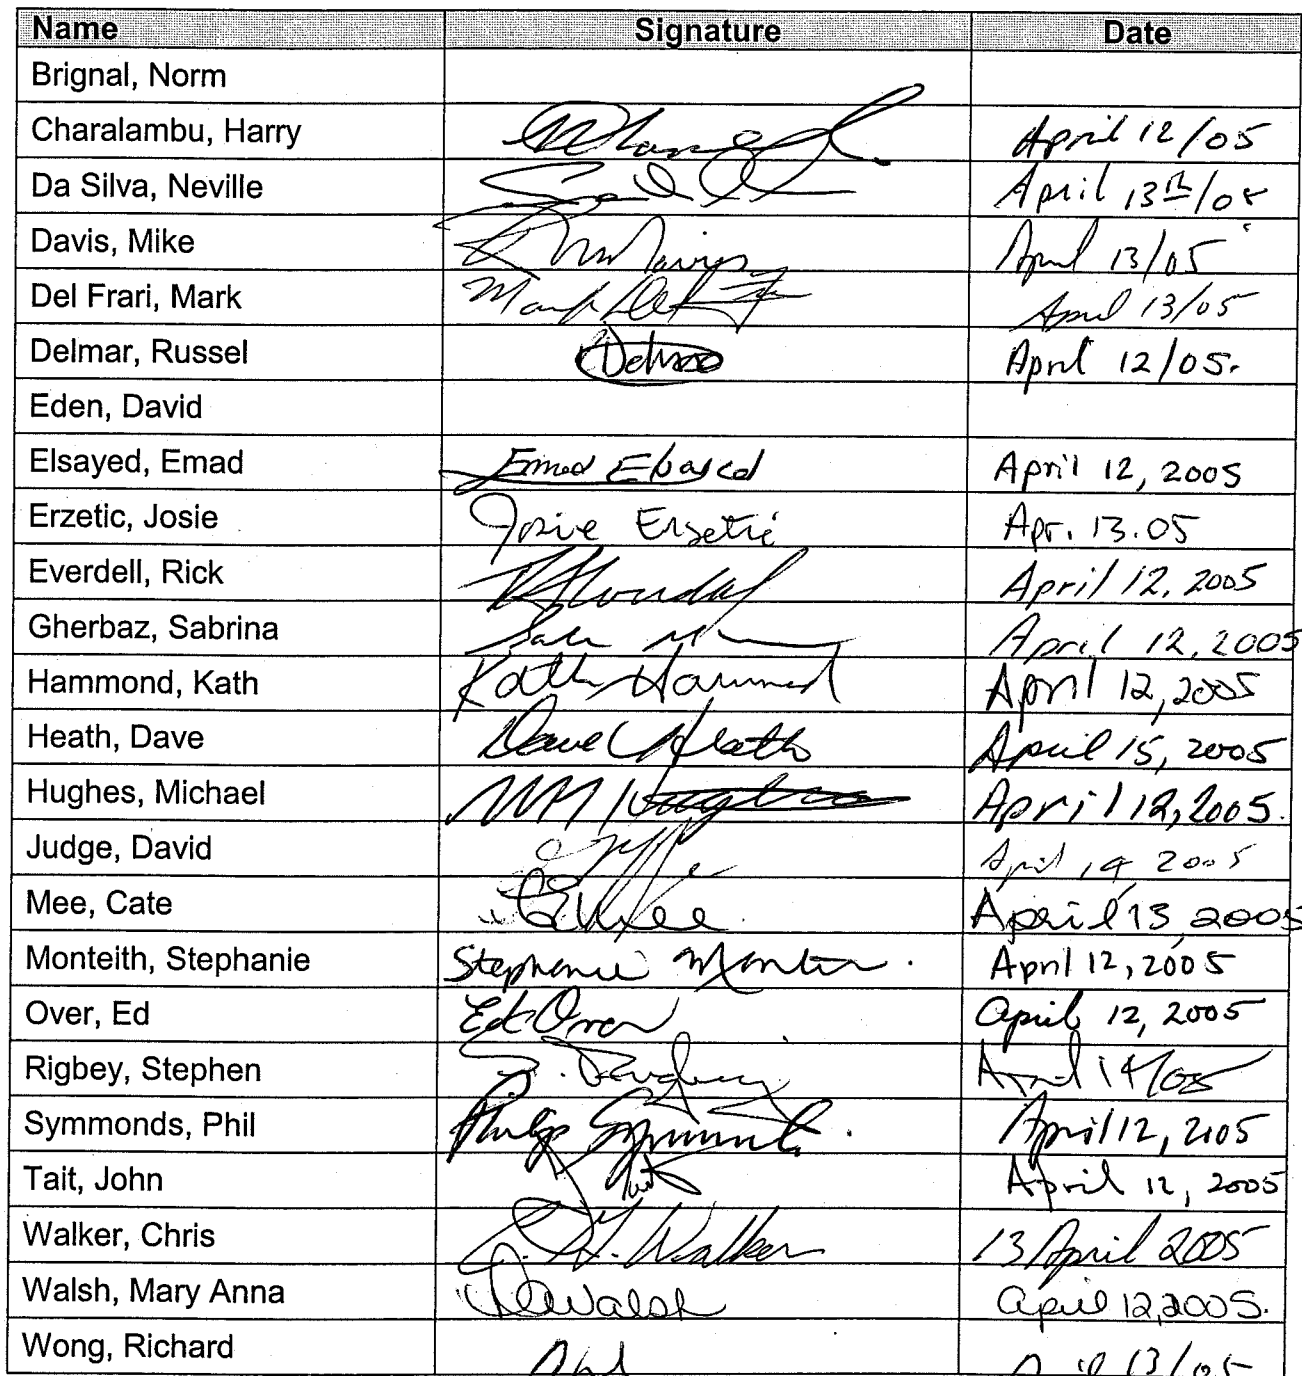 Name Signature Date
Brignal, Norm
Charalambu, Harry April 12/05
Da Silva, Neville April 13th/05
Davis, Mike April 13/05
Del Frari, Mark Mark Del April 13/05
Delmar, Russel April 12/05.
Eden, David
Elsayed, Emad Emad Elsayed April 12, 2005
Erzetic, Josie Josie Erzetic Apr. 13.05
Everdell, Rick April 12, 2005
Gherbaz, Sabrina April 12, 2005
Hammond, Kath Kath Hammond April 12, 2005
Heath, Dave Dave Heath April 15, 2005
Hughes, Michael April 12, 2005.
Judge, David April 14, 2005
Mee, Cate April 13, 2005
Monteith, Stephanie Stephanie April 12, 2005
Over, Ed Ed Over April 12, 2005
Rigbey, Stephen S. Rigbey April 14/05
Symmonds, Phil Philip Symmonds April 12, 2005
Tait, John April 12, 2005
Walker, Chris Walker 13 April 2005
Walsh, Mary Anna Walsh April 12, 2005.
Wong, Richard April 13/05